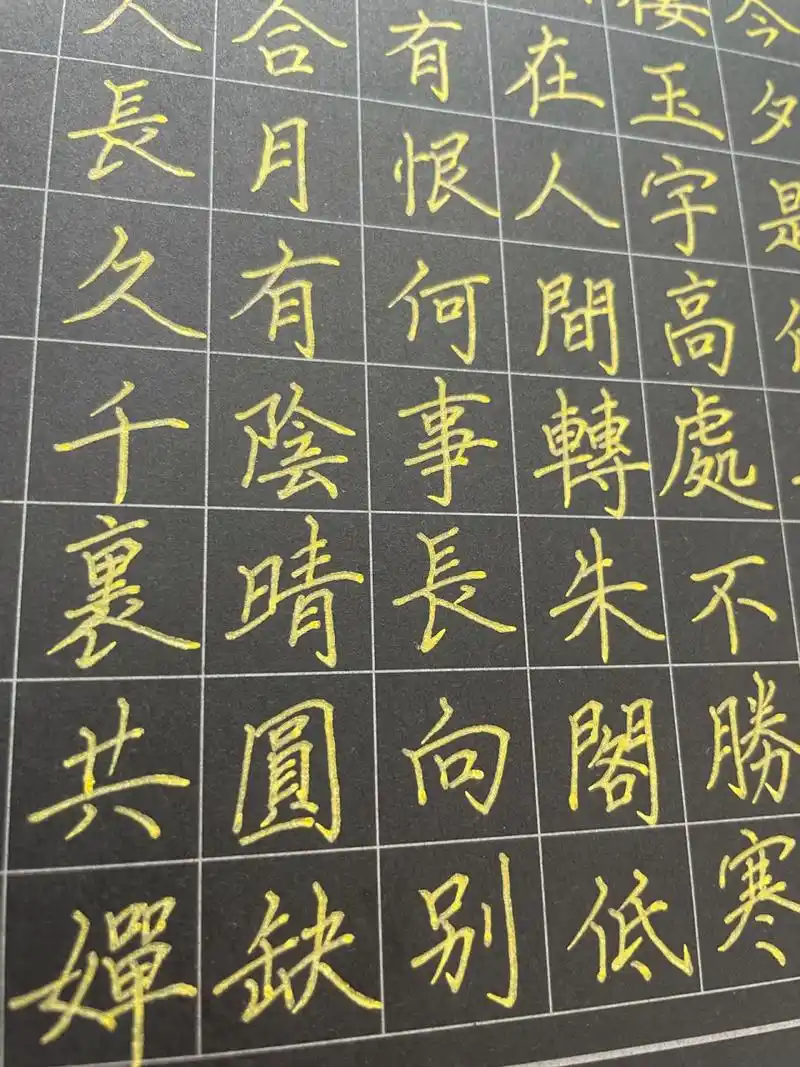 今夕是
樓玉宇高處不勝寒
在人間轉朱閣低
有恨何事長向别
合月有陰晴圓缺
人長久千裏共嬋